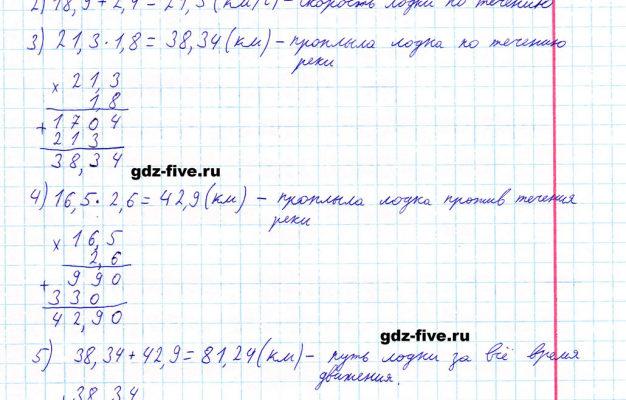 2) 18,9 + 2,4 = 21,3 (км/ч) - скорость лодки по течению
3) 21,3 · 1,8 = 38,34 (км) - проплыла лодка по течению
реки
× 21,3
1,8
+ 1704
213
38,34
gdz-five.ru
4) 16,5 · 2,6 = 42,9 (км) - проплыла лодка против течения
реки
× 16,5
2,6
+ 990
330
42,90
gdz-five.ru
5) 38,34 + 42,9 = 81,24 (км) - путь лодки за всё время
движения.
38,34